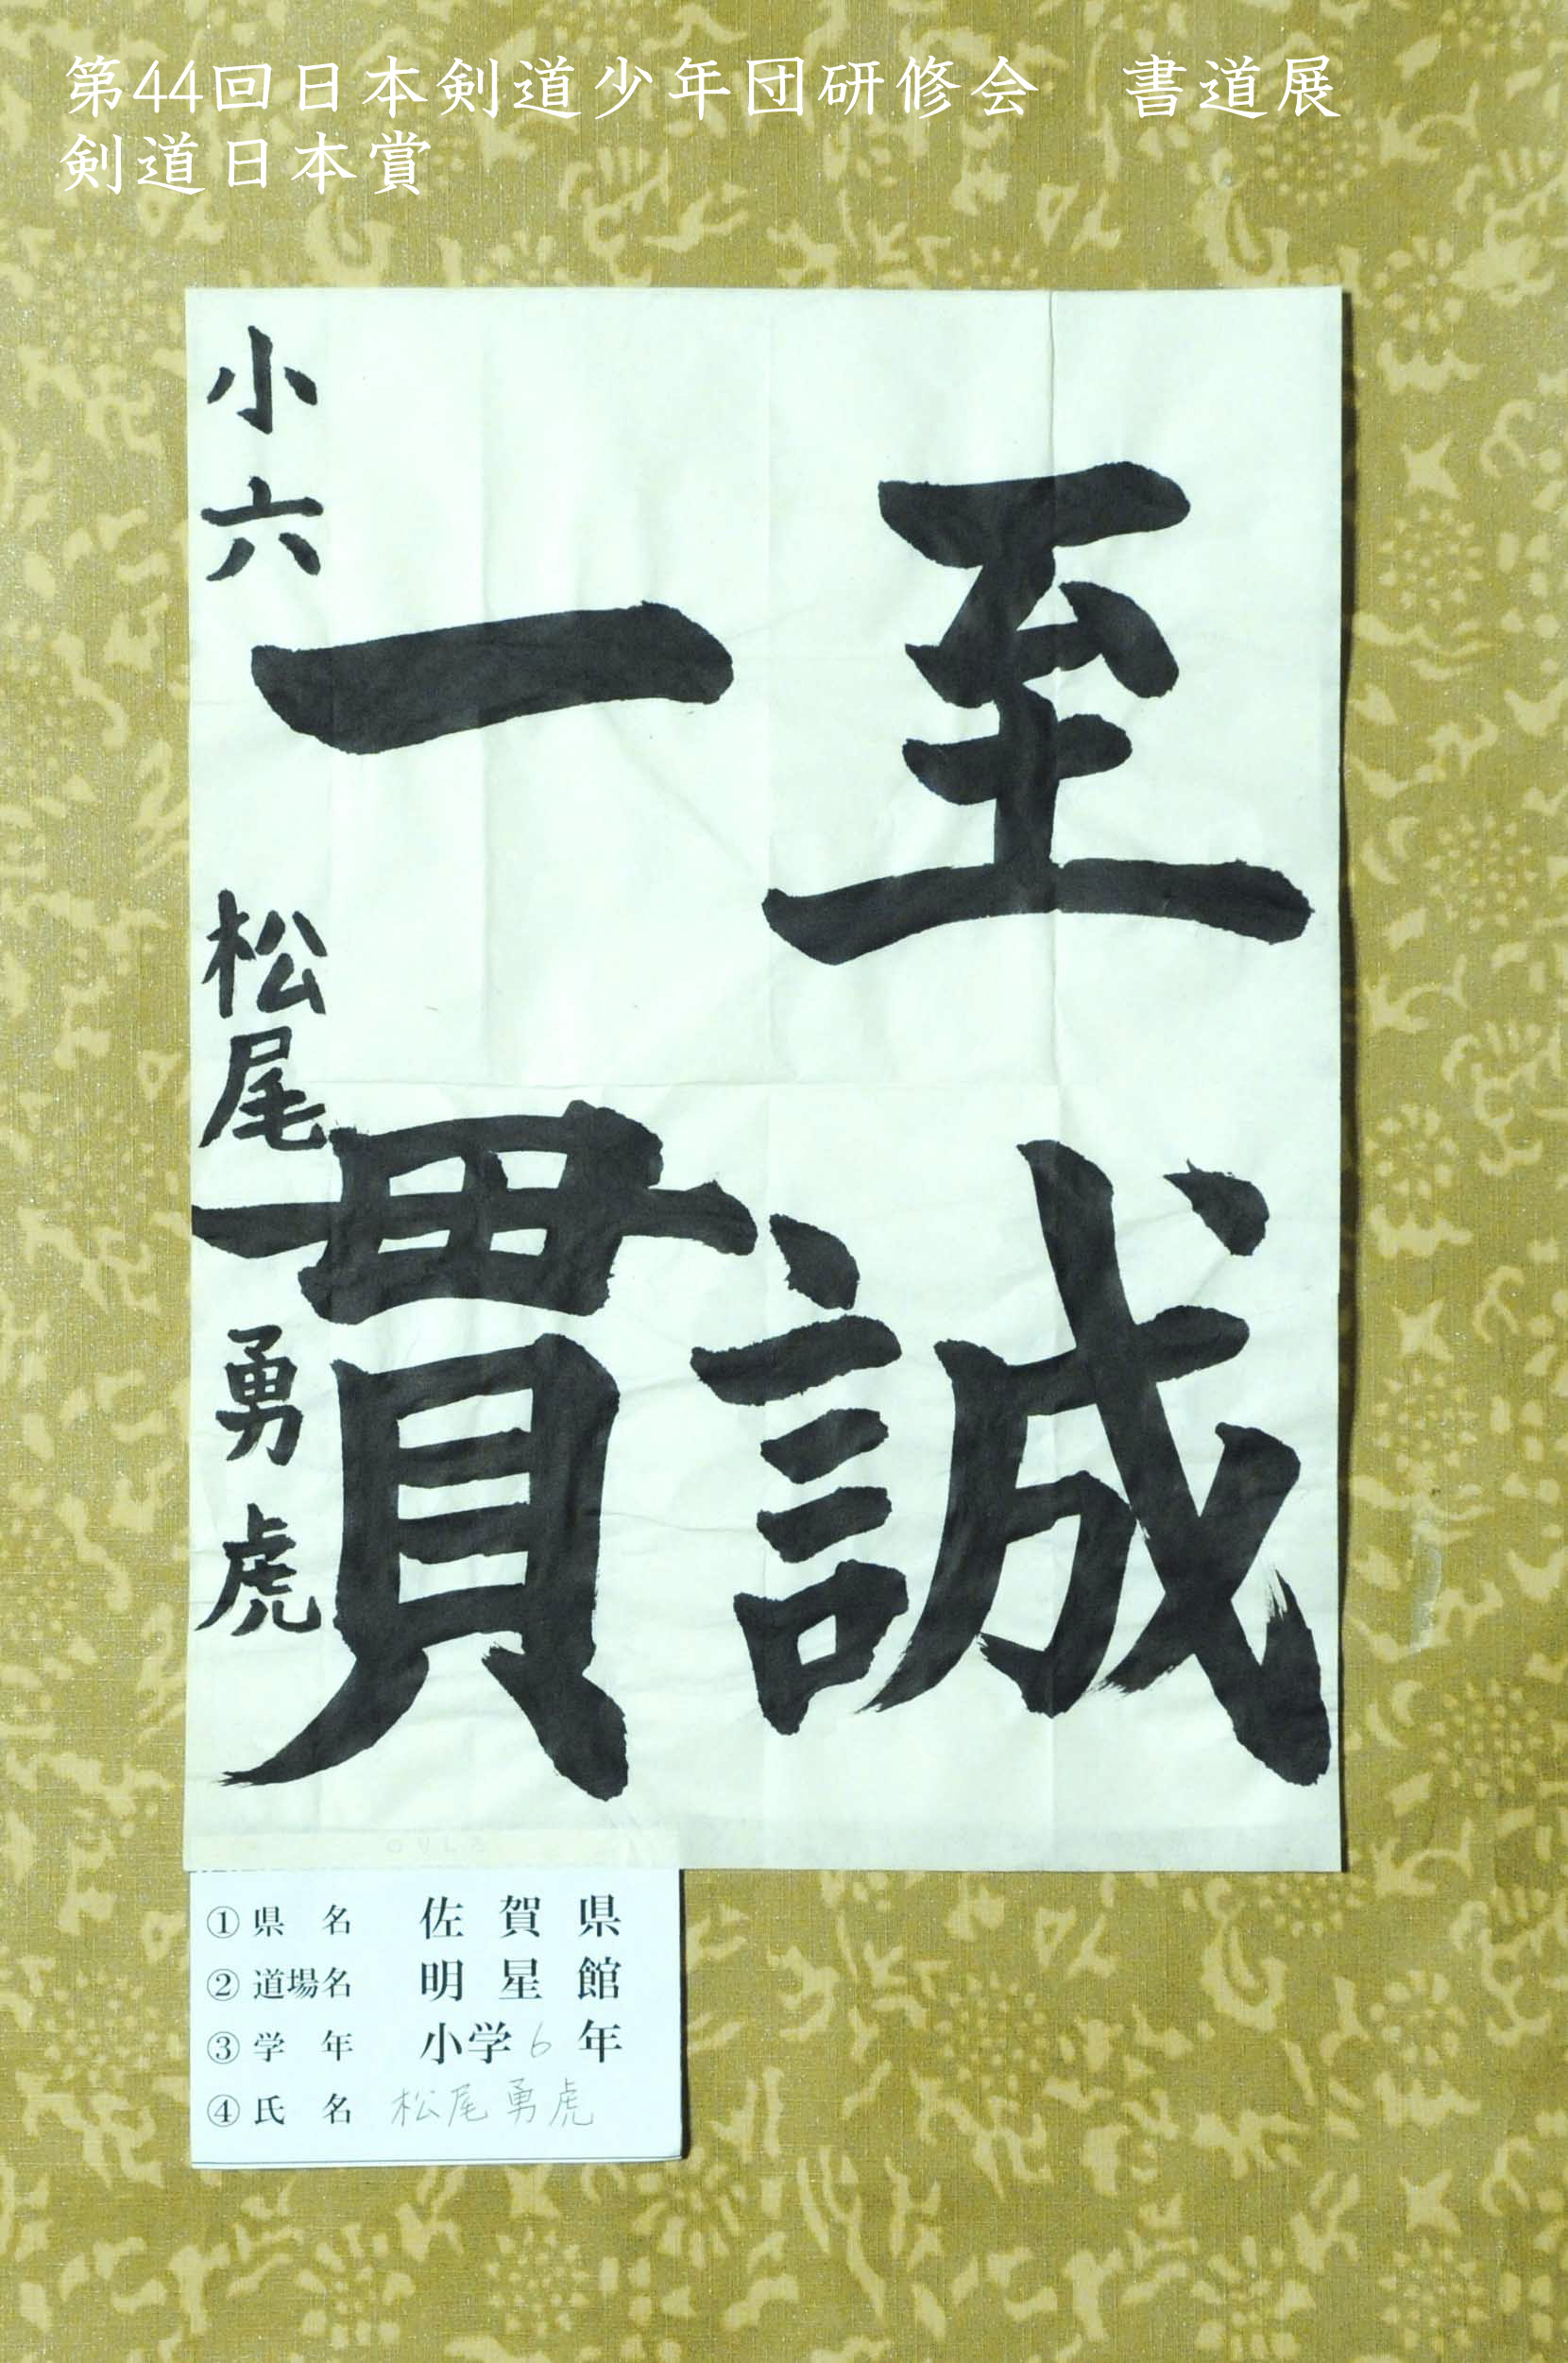 第44回日本剣道少年団研修会　書道展
剣道日本賞
至誠
一貫
小六　松尾勇虎
のりしろ
①県　名　佐賀県
②道場名　明星館
③学　年　小学6年
④氏　名　松尾勇虎